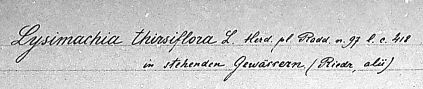 Lysimachia thirsiflora L. Herd. pl. Radd. n. 97 l. c. 418
in stehenden Gewässern (Riedr, alii)